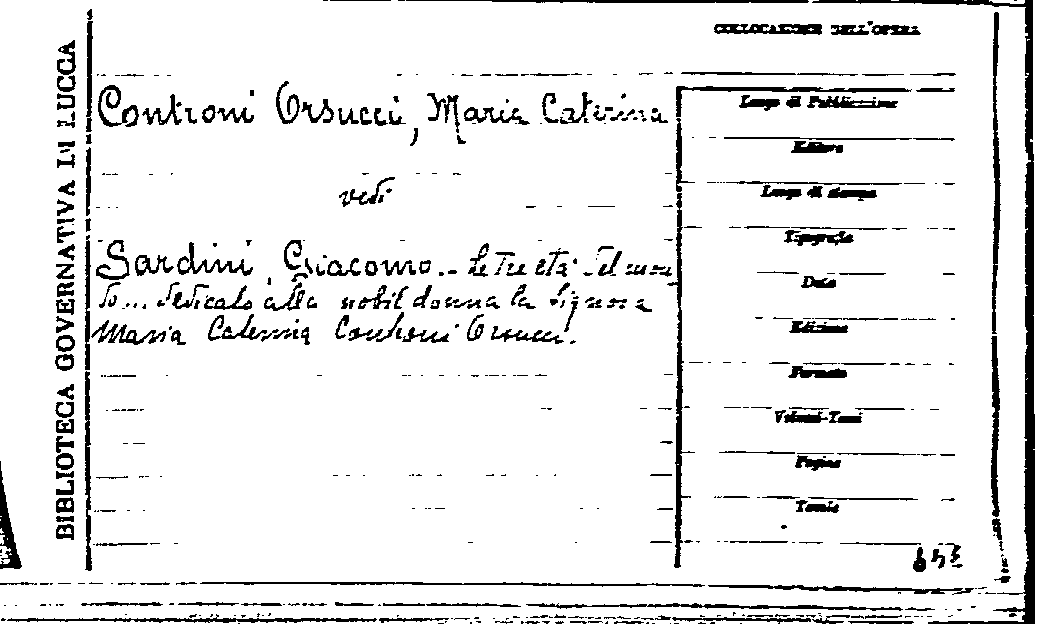 BIBLIOTECA GOVERNATIVA DI LUCCA
COLLOCAZIONE DELL'OPERA
Controni Orsucci, Maria Caterina
vedi
Sardini, Giacomo. - Le tre età del mon
do... dedicato alla nobil donna la Signora
Maria Caterina Controni Orsucci.
Luogo di Pubblicazione
Editore
Luogo di stampa
Tipografia
Data
Edizione
Formato
Volumi-Tomi
Pagine
Tavole